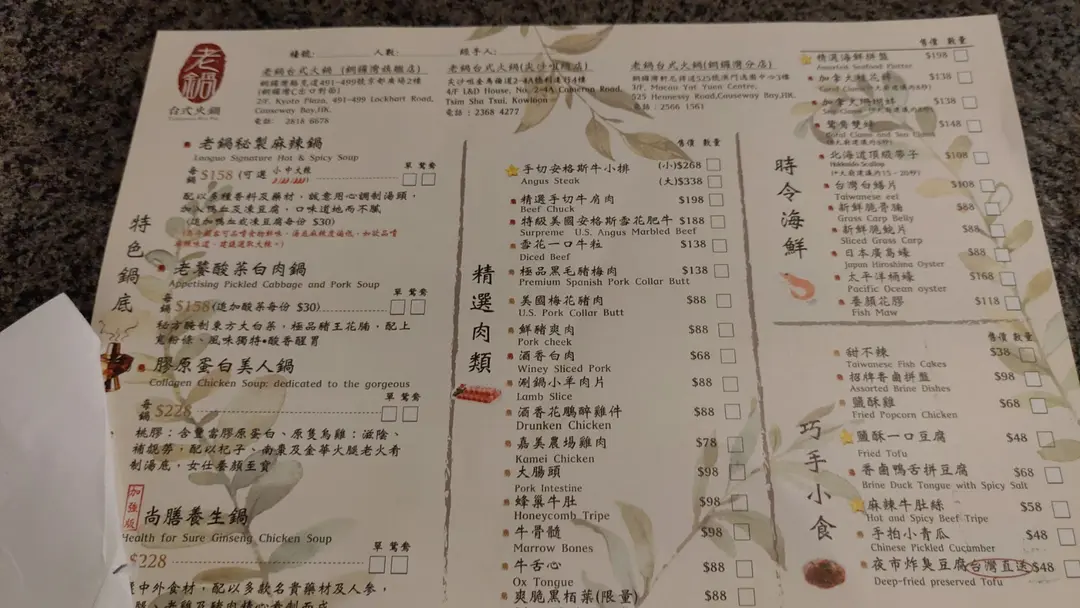 老鍋
台式火鍋
檯號: 人數: 經手人:
老鍋台式火鍋 (銅鑼灣旗艦店)
銅鑼灣駱克道491-499號京都廣場2樓
(銅鑼灣C出口對面)
2/F. Kyoto Plaza, 491-499 Lockhart Road,
Causeway Bay,HK.
電話: 2818 6678
老鍋台式火鍋(尖沙咀分店)
4/F L&D House, No. 2-4A Cameron Road,
Tsim Sha Tsui, Kowloon
電話: 2368 4277
3/F, Macau Yat Yuen Centre,
525 Hennessy Road,Causeway Bay,HK.
電話: 2566 1561
特色鍋底
老鍋秘製麻辣鍋
Laoguo Signature Hot & Spicy Soup
單 鴛鴦
每鍋 $158 (可選 小中大辣
配以多種香料及藥材,誠意用心調制湯頭,
加入鴨血及凍豆腐,口味道地而不膩
(追加鴨血或凍豆腐每份 $30)
老饕酸菜白肉鍋
Appetising Pickled Cabbage and Pork Soup
單 鴛鴦
每鍋 $158(追加酸菜每份 $30)
秘方醃制東方大白菜,極品豬王花腩,配上
寬粉條、風味獨特•酸香醒胃
膠原蛋白美人鍋
Collagen Chicken Soup: dedicated to the gorgeous
單 鴛鴦
每鍋 $228
桃膠:含豐富膠原蛋白、原隻烏雞:滋陰、
補虛勞,配以杞子、南棗及金華火腿老火肴
制湯底,女仕養顏至寶
加強版
尚膳養生鍋
Health for Sure Ginseng Chicken Soup
單 鴛鴦
$228
中外食材,配以多款名貴藥材及人參,
精選肉類
售價 數量
手切安格斯牛小排 (小)$268
Angus Steak (大)$338
精選手切牛肩肉 $198
Beef Chuck
特級美國安格斯雪花肥牛 $188
Surpreme U.S. Angus Marbled Beef
雪花一口牛粒 $138
Diced Beef
極品黑毛豬梅肉 $138
Premium Spanish Pork Collar Butt
美國梅花豬肉 $88
U.S. Pork Collar Butt
鮮豬爽肉 $88
Pork cheek
酒香白肉 $68
Winey Sliced Pork
涮鍋小羊肉片 $88
Lamb Slice
酒香花鵰醉雞件 $88
Drunken Chicken
嘉美農場雞肉 $78
Kamei Chicken
大腸頭 $98
Pork Intestine
蜂巢牛肚 $98
Honeycomb Tripe
牛骨髓 $98
Marrow Bones
牛舌心 $88
Ox Tongue
爽脆黑栢葉(限量) $88
時令海鮮
售價 數量
精選海鮮拼盤 $198
Assorted Seafood Platter
加拿大桂花蚌 $138
加拿大珊瑚蚌 $138
鴛鴦雙蚌 $148
Coral Clams and Sea Clams
北海道頂級帶子 $108
Hokkaido Scallop
台灣白鱔片 $108
Taiwanese eel
新鮮脆膏腩 $88
Grass Carp Belly
新鮮脆鯇片 $88
Sliced Grass Carp
日本廣島蠔 $88
Japan Hiroshima Oyster
太平洋桶蠔 $168
Pacific Ocean oyster
養顏花膠 $118
Fish Maw
巧手小食
售價 數量
甜不辣 $38
Taiwanese Fish Cakes
招牌香鹵拼盤 $98
Assorted Brine Dishes
鹽酥雞 $68
Fried Popcorn Chicken
鹽酥一口豆腐 $48
Fried Tofu
香鹵鴨舌拼豆腐 $68
Brine Duck Tongue with Spicy Salt
麻辣牛肚絲 $58
Hot and Spicy Beef Tripe
手拍小青瓜 $48
Chinese Pickled Cucumber
夜市炸臭豆腐台灣直送 $48
Deep-fried preserved Tofu